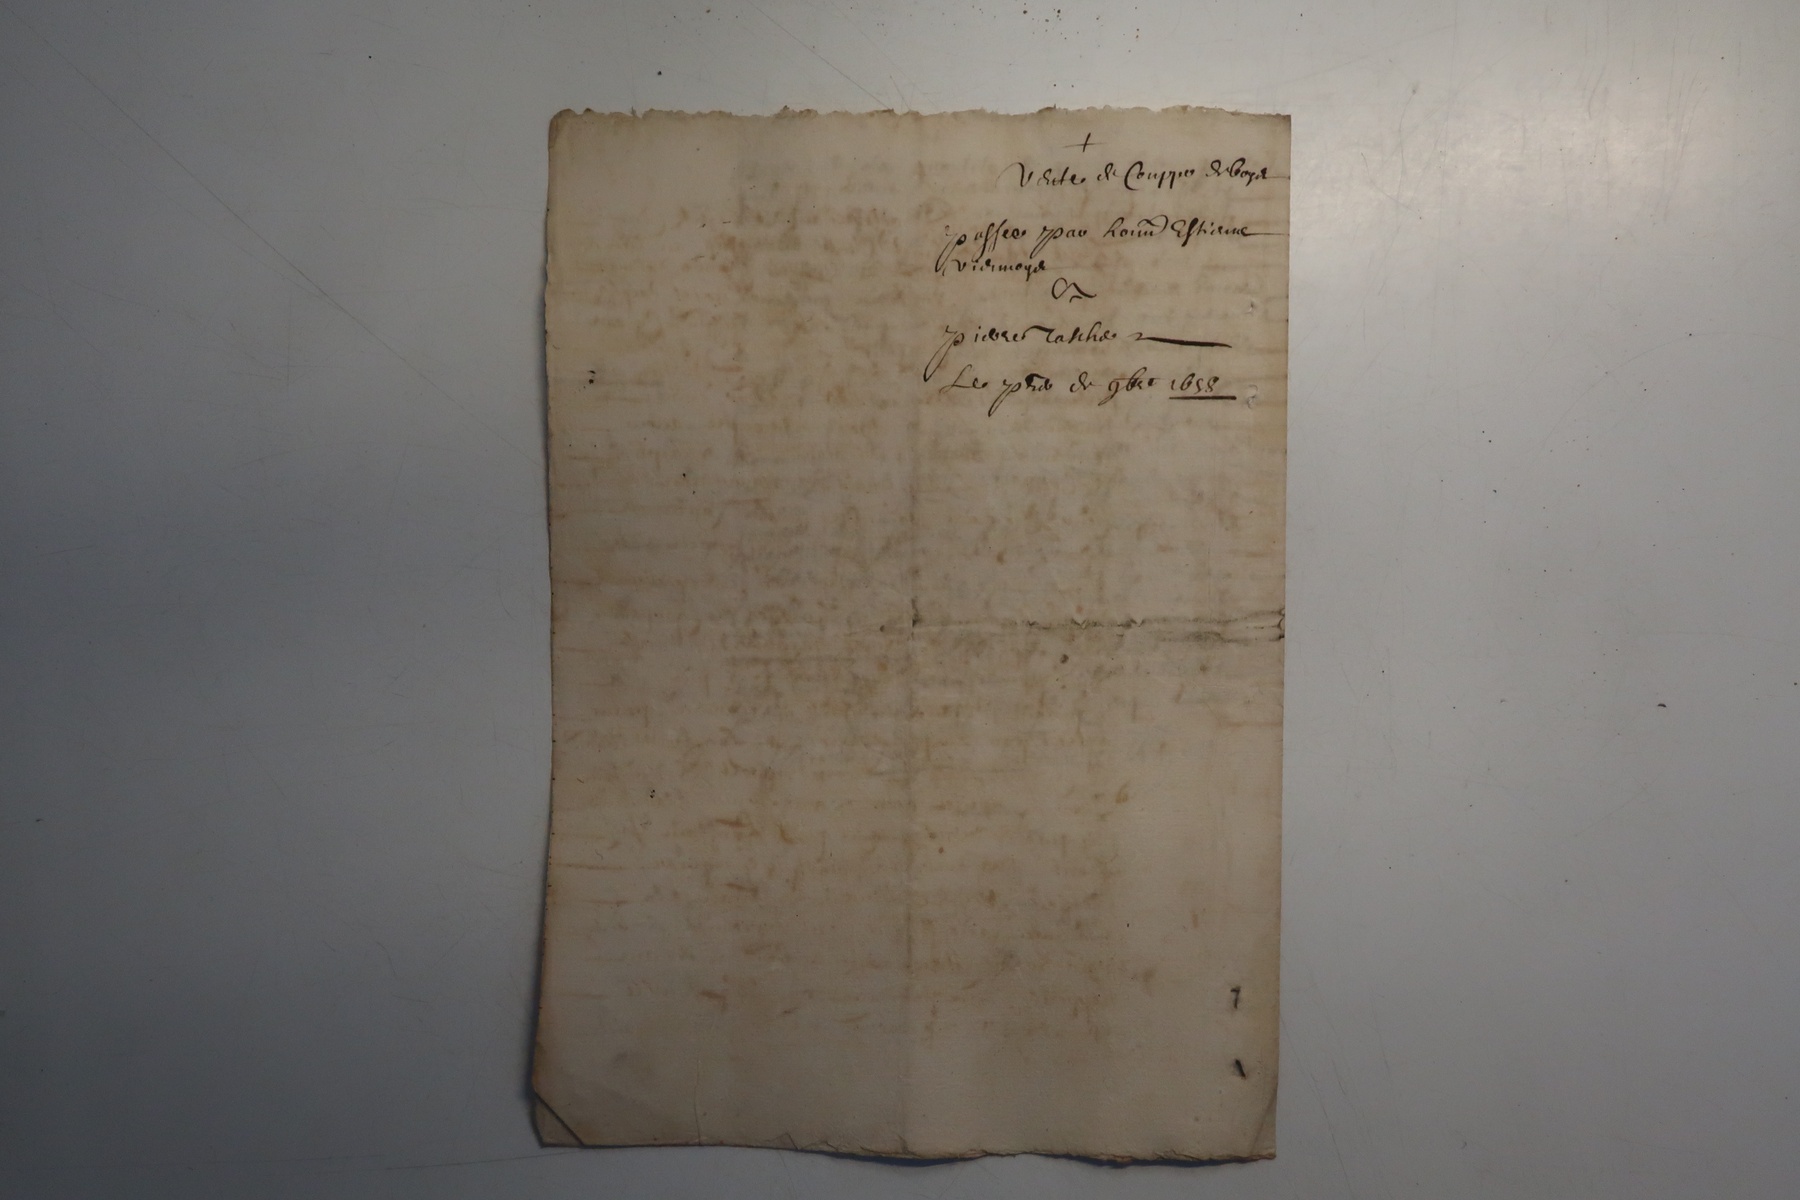 +
Vente de Couppe de boys
passee par honn Estienne
Viennoys
&
pierre Taschs
Le pre de 9bre 1658